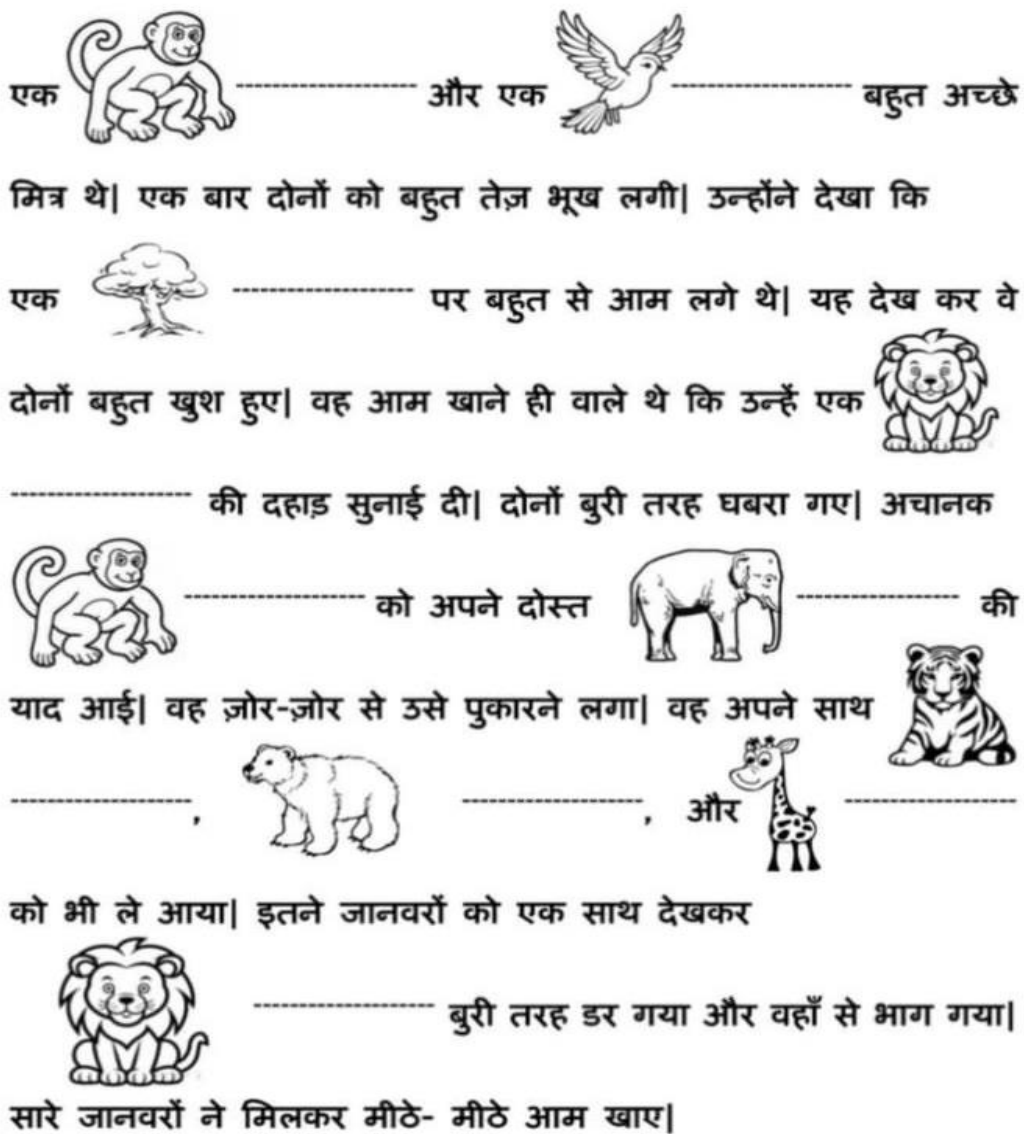 एक ------------------ और एक ------------------ बहुत अच्छे
मित्र थे| एक बार दोनों को बहुत तेज़ भूख लगी| उन्होंने देखा कि
एक ------------------ पर बहुत से आम लगे थे| यह देख कर वे
दोनों बहुत खुश हुए| वह आम खाने ही वाले थे कि उन्हें एक
------------------ की दहाड़ सुनाई दी| दोनों बुरी तरह घबरा गए| अचानक
------------------ को अपने दोस्त ------------------ की
याद आई| वह ज़ोर-ज़ोर से उसे पुकारने लगा| वह अपने साथ
------------------, ------------------, और ------------------
को भी ले आया| इतने जानवरों को एक साथ देखकर
------------------ बुरी तरह डर गया और वहाँ से भाग गया|
सारे जानवरों ने मिलकर मीठे- मीठे आम खाए|